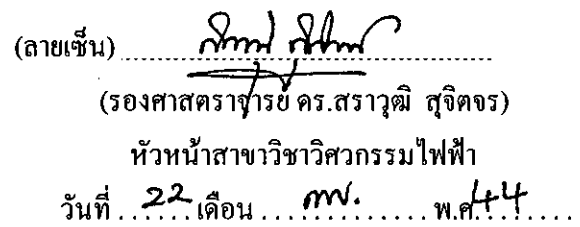 (ลายเซ็น)
(รองศาสตราจารย์ ดร.สราวุฒิ สุจิตจร)
หัวหน้าสาขาวิชาวิศวกรรมไฟฟ้า
วันที่ 22 เดือน กพ. พ.ศ. 44